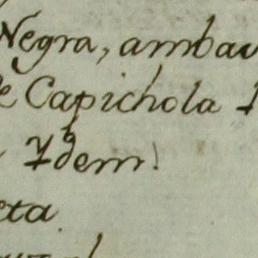 Negra, ambau
e Capichola 1
Ydem.
cta